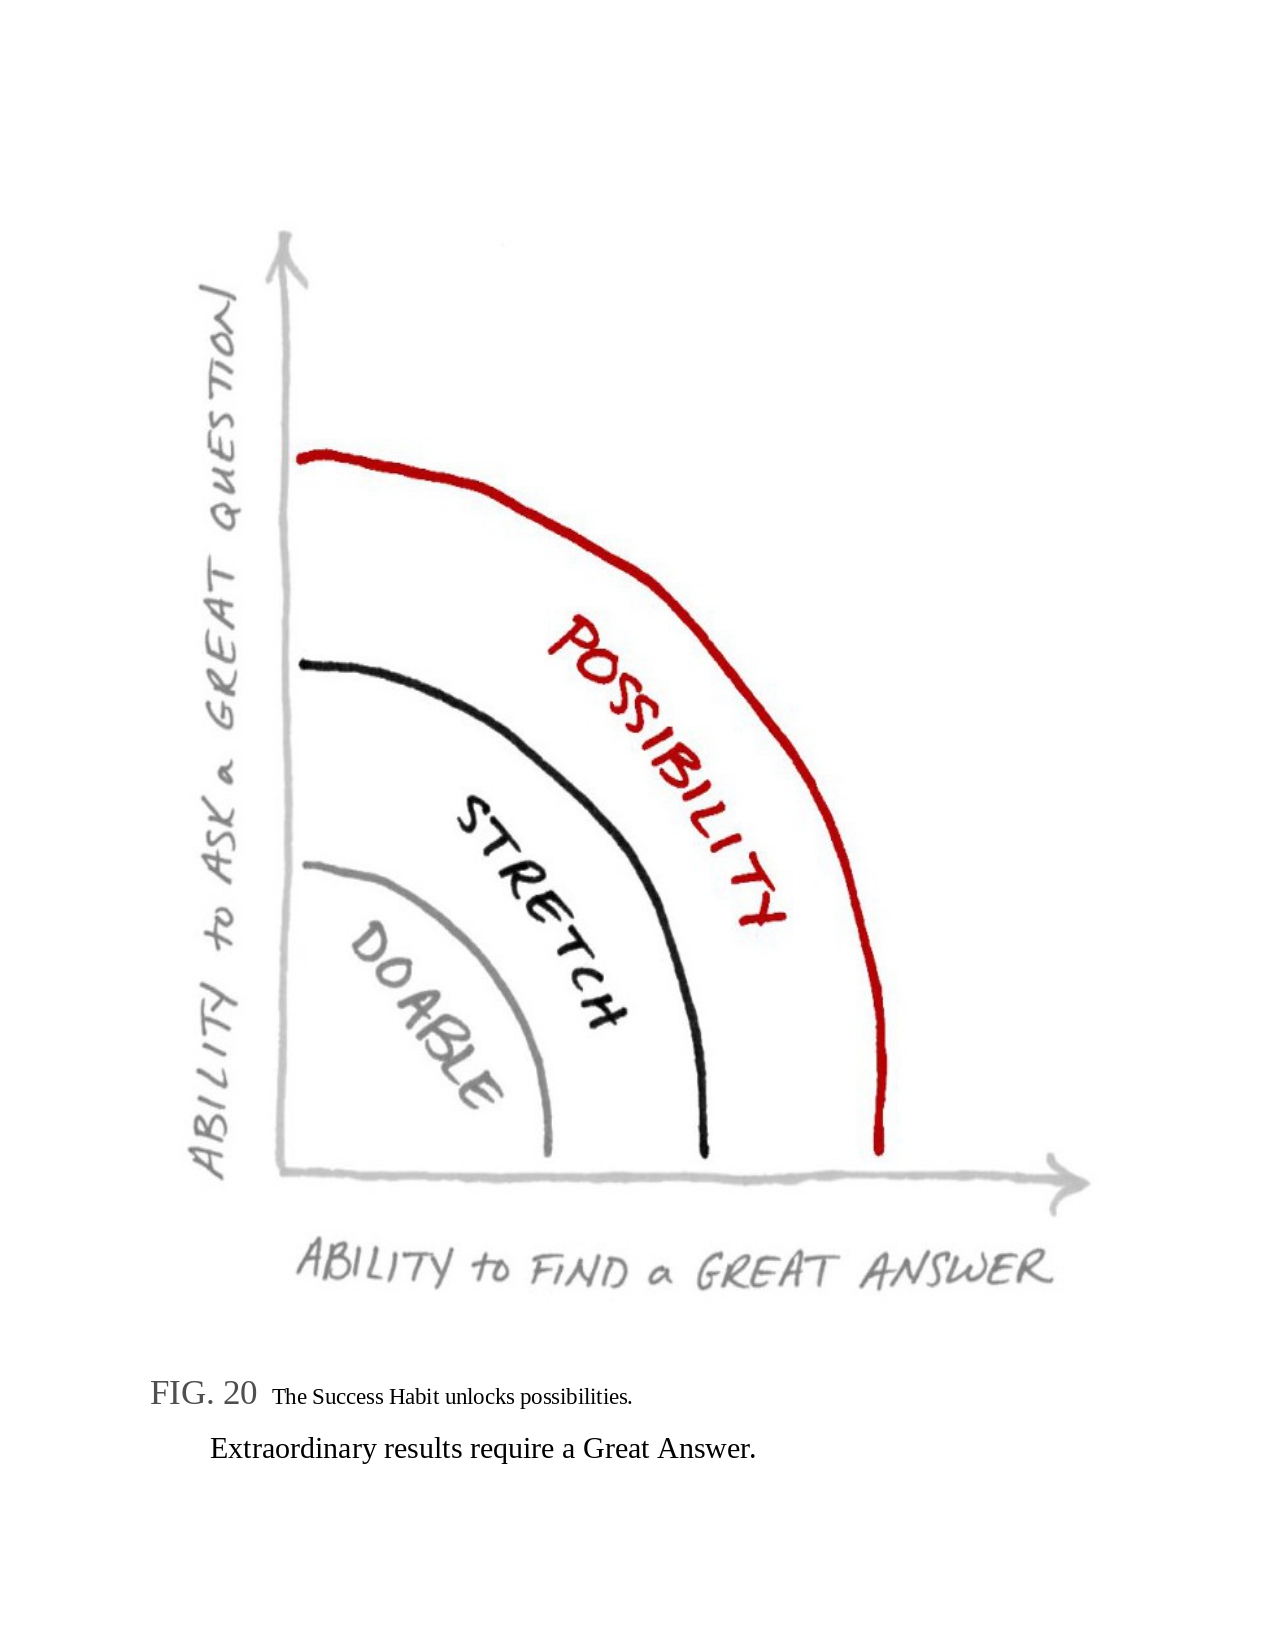 ABILITY to ASK a GREAT QUESTION
POSSIBILITY
STRETCH
DOABLE
ABILITY to FIND a GREAT ANSWER
FIG. 20 The Success Habit unlocks possibilities.
Extraordinary results require a Great Answer.